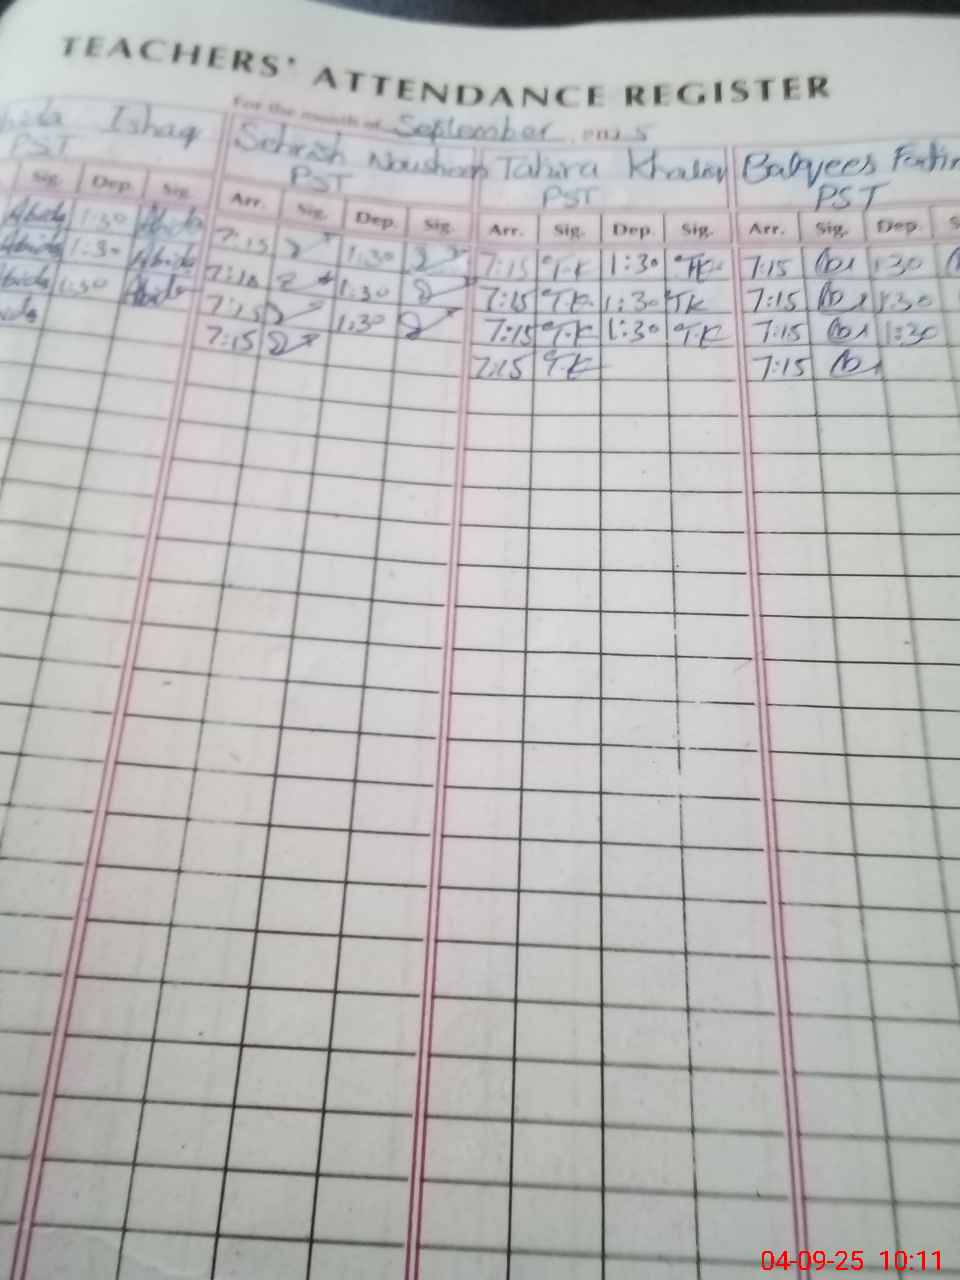 TEACHERS' ATTENDANCE REGISTER
For the month of September 2025
Ishaq Sehrish Tahira Khalay Balqees
PST PST PST PST
Sig. Dep. Sig. Arr. Sig. Dep. Sig. Arr. Sig. Dep. Sig. Arr. Sig. Dep.
Abida 1:30 Abida 7:15 1:30 7:15 T.K 1:30 TK 7:15 1:30
Abida 1:30 Abida 7:15 1:30 7:15 T.K 1:30 TK 7:15 1:30
Abida 1:30 Abida 7:15 1:30 7:15 T.K 1:30 T.K 7:15 1:30
7:15 7:15 T.K 7:15
04-09-25 10:11